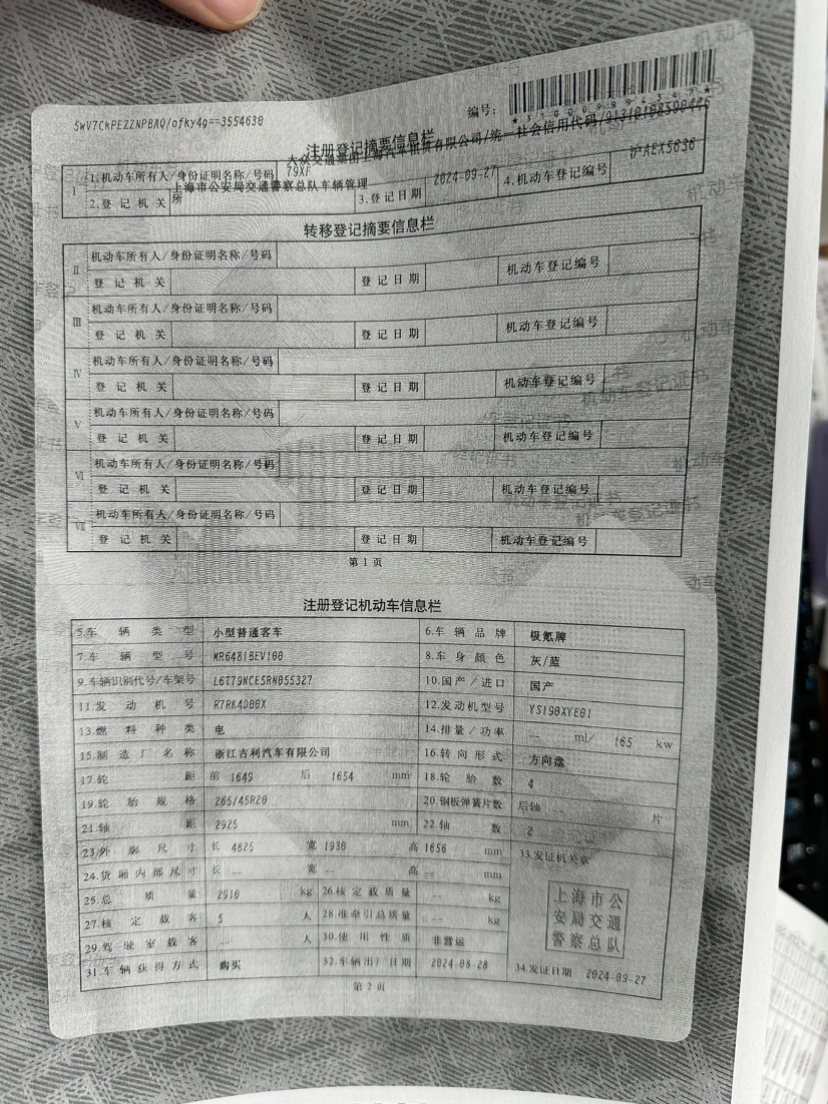 5WV7CkPEZZNPBAQ/ofky4g==3554630
编号:
注册登记摘要信息栏
Ⅰ 1.机动车所有人/身份证明名称/号码 有限公司/统一社会信用代码/
79XF
2.登记机关 上海市公安局交通警察总队车辆管理所 3.登记日期 2024-09-27 4.机动车登记编号 沪AEX5636
转移登记摘要信息栏
Ⅱ 机动车所有人/身份证明名称/号码
登记机关 登记日期 机动车登记编号
Ⅲ 机动车所有人/身份证明名称/号码
登记机关 登记日期 机动车登记编号
Ⅳ 机动车所有人/身份证明名称/号码
登记机关 登记日期 机动车登记编号
Ⅴ 机动车所有人/身份证明名称/号码
登记机关 登记日期 机动车登记编号
Ⅵ 机动车所有人/身份证明名称/号码
登记机关 登记日期 机动车登记编号
Ⅶ 机动车所有人/身份证明名称/号码
登记机关 登记日期 机动车登记编号
第1页
注册登记机动车信息栏
5.车辆类型 小型普通客车 6.车辆品牌 极氪牌
7.车辆型号 MR6481BEV108 8.车身颜色 灰/蓝
9.车辆识别代号/车架号 L6T79NCE5RN055327 10.国产/进口 国产
11.发动机号 R7RK4D00X 12.发动机型号 YS190XYE01
13.燃料种类 电 14.排量/功率 -- ml/ 165 kw
15.制造厂名称 浙江吉利汽车有限公司 16.转向形式 方向盘
17.轮距 前 1649 后 1654 mm 18.轮胎数 4
19.轮胎规格 265/45R20 20.钢板弹簧片数 后轴 -- 片
21.轴距 2925 mm 22.轴数 2
23.外廓尺寸 长 4825 宽 1930 高 1656 mm 33.发证机关章
24.货厢内部尺寸 长 -- 宽 -- 高 -- mm
25.总质量 2910 kg 26.核定载质量 -- kg
27.核定载客 5 人 28.准牵引总质量 -- kg
29.驾驶室载客 -- 人 30.使用性质 非营运
上海市公
安局交通
警察总队
31.车辆获得方式 购买 32.车辆出厂日期 2024-08-28 34.发证日期 2024-09-27
第2页